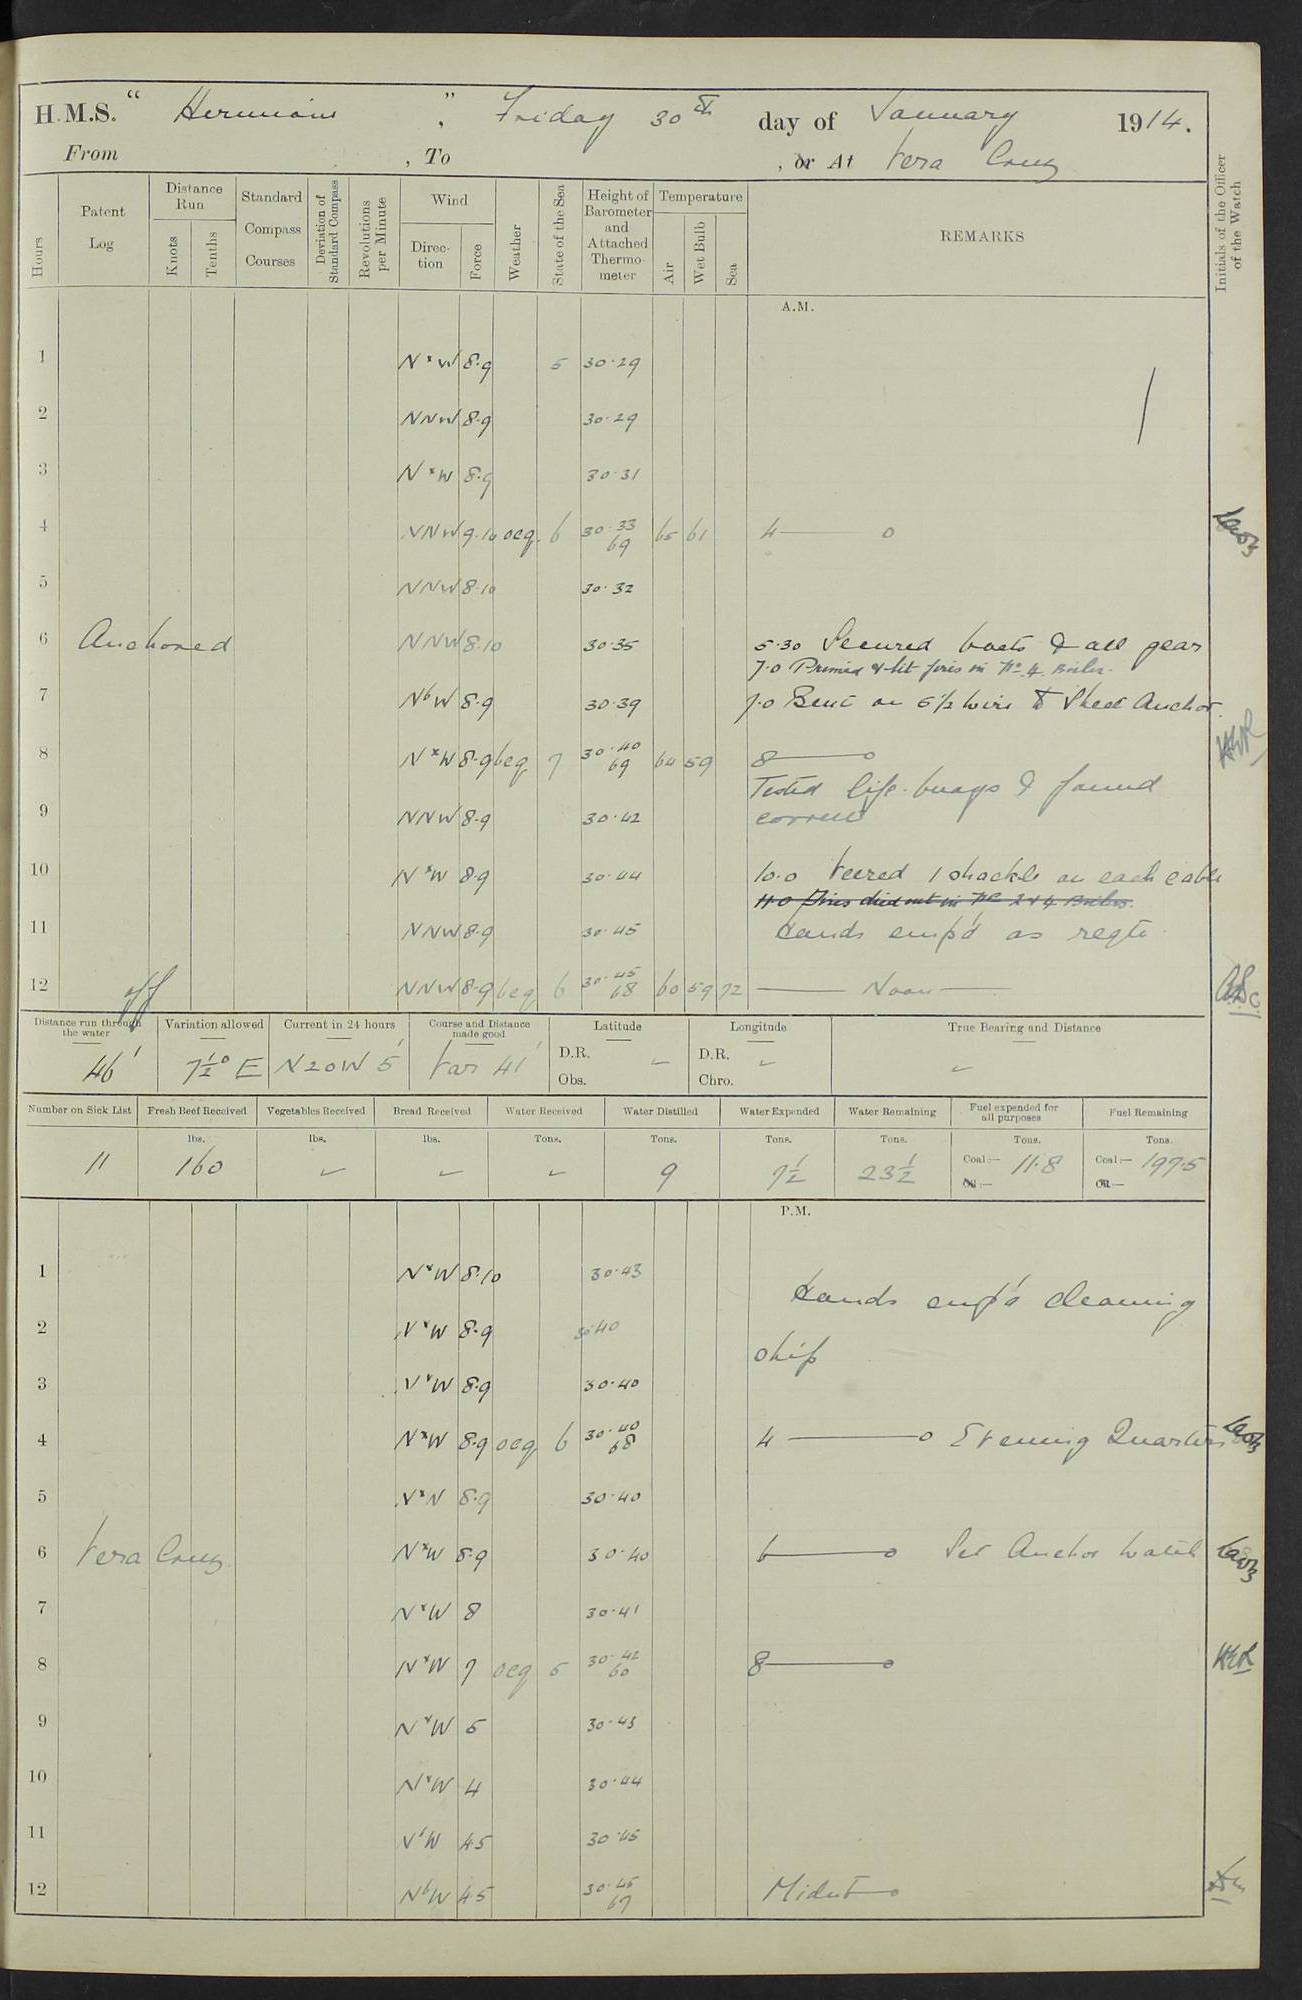 H.M.S. " Hermione ", Friday 30th day of January 1914.
From , To , or At Vera Cruz
Hours
Patent Log
Distance Run
Knots
Tenths
Standard Compass Courses
Deviation of Standard Compass
Revolutions per Minute
Wind
Direction
Force
Weather
State of the Sea
Height of Barometer and Attached Thermometer
Temperature
Air
Wet Bulb
Sea
REMARKS
Initials of the Officer of the Watch
A.M.
1 NxW 8.9 5 30.29
2 NNW 8.9 30.29
3 NxW 8.9 30.31
4 NNW 9.10 ocq. 6 30.33 69 65 61 4 —— o
5 NNW 8.10 30.32
6 Anchored NNW 8.10 30.35 5.30 Secured boats & all gear
7.0 Primed & lit fires in No. 4. Boiler.
7 NbW 8.9 30.39 7.0 Bent on 5½ wire to Sheet Anchor.
8 NxW 8.9 bcq 7 30.40 69 64 59 8 —— o
Tested life-buoys & found
9 NNW 8.9 30.42 correct
10 NxW 8.9 30.44 10.0 Veered 1 shackle on each cable
11.0 Fires died out in No 2 & 4 Boilers.
11 NNW 8.9 30.45 Hands emp'd as reqte.
12 off NNW 8.9 bcq 6 30.45 68 60 59 72 —— Noon ——
Distance run through the water
Variation allowed
Current in 24 hours
Course and Distance made good
Latitude
Longitude
True Bearing and Distance
46' 7½° E N20W 5' Var 41' D.R. Obs. D.R. Chro.
Number on Sick List
Fresh Beef Received
Vegetables Received
Bread Received
Water Received
Water Distilled
Water Expended
Water Remaining
Fuel expended for all purposes
Fuel Remaining
lbs. lbs. lbs. Tons. Tons. Tons. Tons. Tons. Tons.
11 160 9 7½ 23½ Coal:— 11.8 Coal:— 197.5
Oil:— Oil:—
P.M.
1 NxW 8.10 30.43 Hands emp'd cleaning
2 NxW 8.9 30.40 ship
3 NxW 8.9 30.40
4 NxW 8.9 ocq 6 30.40 68 4 —— o Evening Quarters
5 NxN 8.9 30.40
6 Vera Cruz NxW 8.9 30.40 6 —— o Set Anchor Watch
7 NxW 8 30.41
8 NxW 7 ocq 5 30.42 60 8 —— o
9 NxW 5 30.43
10 NxW 4 30.44
11 NxW 4.5 30.45
12 NbW 4.5 30.45 67 Midnt —— o